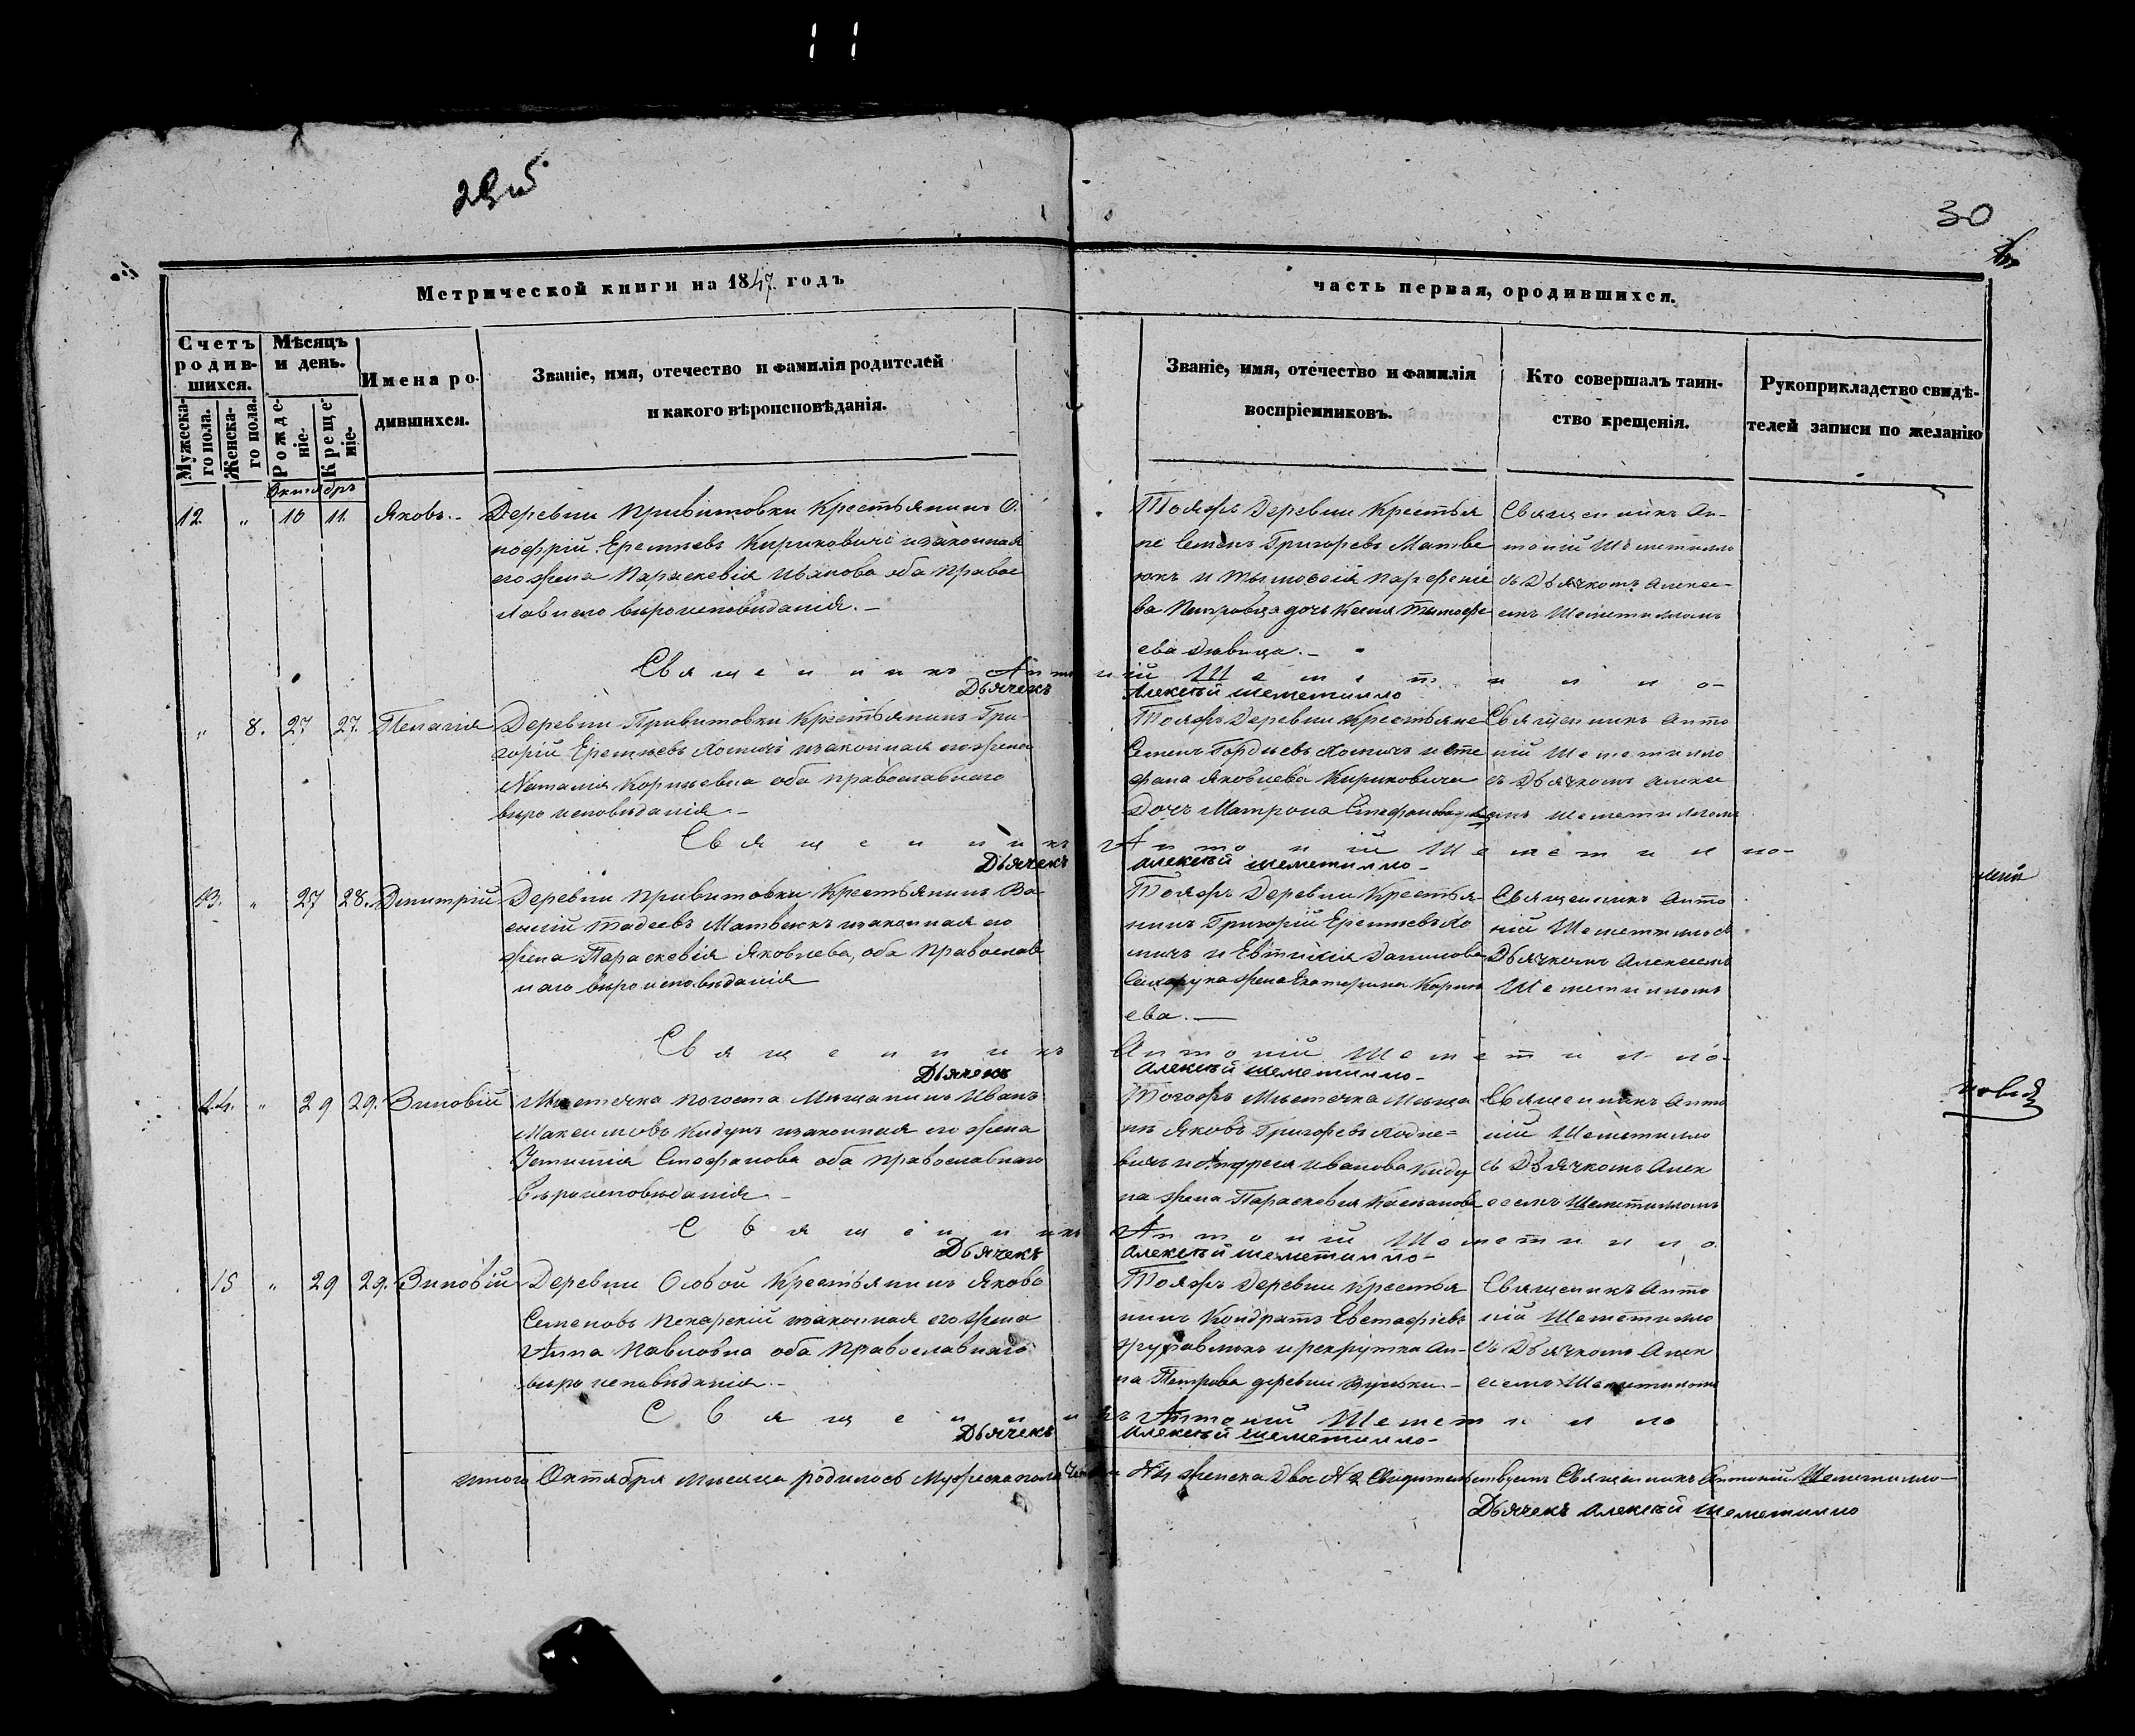 295
30
Метрической книги на 1847 годъ
часть первая, ородившихся.
Счетъ родив-шихся.
Мѣсяцъ и день.
Имена ро-дившихся.
Званіе, имя, отечество и фамилія родителей
и какого вѣроисповѣданія.
Званіе, имя, отечество и фамилія
воспріемниковъ.
Кто совершалъ таин-
ство крещенія.
Рукоприкладство свидѣ-
телей записи по желанію
Мужеска-го пола.
Женска-го пола.
Рожде-ніе.
Креще-ніе.
Октябрь
12 " 10 11. Яковъ.-
Деревни Прывитовки Крестьянинъ О.
нофрій Еремѣевъ Кириковичъ изаконная
его жена Параскевія Иванова оба Правос
лавнаго вѣроисповѣданія.-
Тояжъ Деревни Крестья
не Семенъ Григорьевъ Матве
юкъ и Тимофея Парфеніе
ва дочь Тимофе
ева дѣвица.-
Священникъ Ан-
тоній Шеметилло
съ Дьячкомъ Алексе-
емъ Шеметилломъ
Священникъ Антоній Шеметилло-
Дьячекъ Алексѣй Шеметилло
" 8. 27 27. Пелагія
Деревни Прывитовки Крестьянинъ Гри-
горій Еремѣевъ Хомичъ изаконная его жена
Наталія Корнѣевна оба православнаго
вѣроисповѣданія.-
Тояжъ Деревни Крестьяне
Семенъ Гордѣевъ Хомичъ и Сте
фана Яковлева Кириковича
Дочь Матрона Стефанова
Священникъ Анто
ній Шеметилло
съ Дьячкомъ Алексе
емъ Шеметилломъ
Священникъ Антоній Шеметилло-
Дьячекъ Алексѣй Шеметилло-
13. " 27 28. Димитрій
Деревни Прывитовки Крестьянинъ Ва
силій Тадеевъ Матвеюкъ изаконная его
жена Параскевія Яковлева, оба Православ
наго вѣроисповѣданія
Тояжъ Деревни Крестья-
нинъ Григорій Еремѣевъ Хо
мичъ и Евтихія Данилова
жена Екатерина Корнѣ
ева.-
Священникъ Анто
ній Шеметилло съ
Дьячкомъ Алексеемъ
Шеметилломъ
Священникъ Антоній Шеметилло-
Дьячекъ Алексѣй Шеметилло-
14. " 29 29. Зиновій
Мѣстечка Погоста Мѣщанинъ Иванъ
Максимовъ Кидунъ изаконная его жена
Устинія Стефанова оба православнаго
Вѣроисповѣданія.-
Тогожъ Мѣстечка Мѣща
нъ Яковъ Григорьевъ
Иванова Киду
на жена Параскевія Касьянова
Священникъ Анто
ній Шеметилло
съ Дьячкомъ Алек
сеемъ Шеметилломъ
Священникъ Антоній Шеметилло.
Дьячекъ Алексѣй Шеметилло-
15 " 29 29. Зиновій
Деревни Особой Крестьянинъ Яковъ
Семеновъ Пекарскій изаконная его жена
Анна Павловна оба Православнаго
вѣроисповѣданія.-
Тояжъ Деревни Крестья
нинъ Кондратъ Евстафіевъ
Журавлюкъ и рекрутка Ан-
на Петрова деревни
Священникъ Анто
ній Шеметилло
съ Дьячкомъ Алек
сеемъ Шеметилломъ
Священникъ Антоній Шеметилло
Дьячекъ Алексѣй Шеметилло-
Итого Октября Мѣсяца родилось Мужеска пола № 4 женска два № 2 Свидѣтельствуемъ Священникъ Антоній Шеметилло-
Дьячекъ Алексѣй Шеметилло